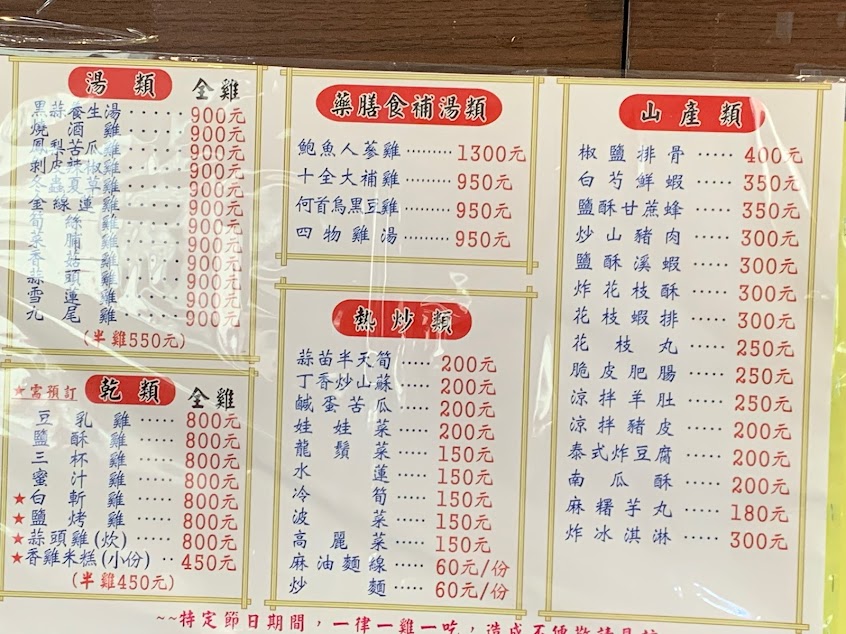 湯類 全雞
黑蒜養生湯 ······ 900元
燒酒雞 ······ 900元
鳳梨苦瓜雞 ······ 900元
剝皮辣椒雞 ······ 900元
冬蟲夏草雞 ······ 900元
金線連雞 ······ 900元
筍絲雞 ······ 900元
菜脯雞 ······ 900元
香菇雞 ······ 900元
蒜頭雞 ······ 900元
雪蓮雞 ······ 900元
九尾雞 ······ 900元
(半雞550元)
★需預訂 乾類 全雞
豆乳雞 ····· 800元
鹽酥雞 ····· 800元
三杯雞 ····· 800元
蜜汁雞 ····· 800元
★白斬雞 ····· 800元
★鹽烤雞 ····· 800元
★蒜頭雞(炊) ···· 800元
★香雞米糕(小份) ·· 450元
(半雞450元)
藥膳食補湯類
鮑魚人蔘雞 ········· 1300元
十全大補雞 ········· 950元
何首烏黑豆雞 ········ 950元
四物雞湯 ········· 950元
熱炒類
蒜苗半天筍 ····· 200元
丁香炒山蘇 ····· 200元
鹹蛋苦瓜 ····· 200元
娃娃菜 ····· 200元
龍鬚菜 ····· 150元
水蓮 ····· 150元
冷筍 ····· 150元
波菜 ····· 150元
高麗菜 ····· 150元
麻油麵線 ····· 60元/份
炒麵 ····· 60元/份
山產類
椒鹽排骨 ····· 400元
白芍鮮蝦 ····· 350元
鹽酥甘蔗蜂 ····· 350元
炒山豬肉 ····· 300元
鹽酥溪蝦 ····· 300元
炸花枝酥 ····· 300元
花枝蝦排 ····· 300元
花枝丸 ····· 250元
脆皮肥腸 ····· 250元
涼拌羊肚 ····· 250元
涼拌豬皮 ····· 200元
泰式炸豆腐 ····· 200元
南瓜酥 ····· 200元
麻糬芋丸 ····· 180元
炸冰淇淋 ····· 300元
~~特定節日期間,一律一雞一吃,造成不便敬請見諒